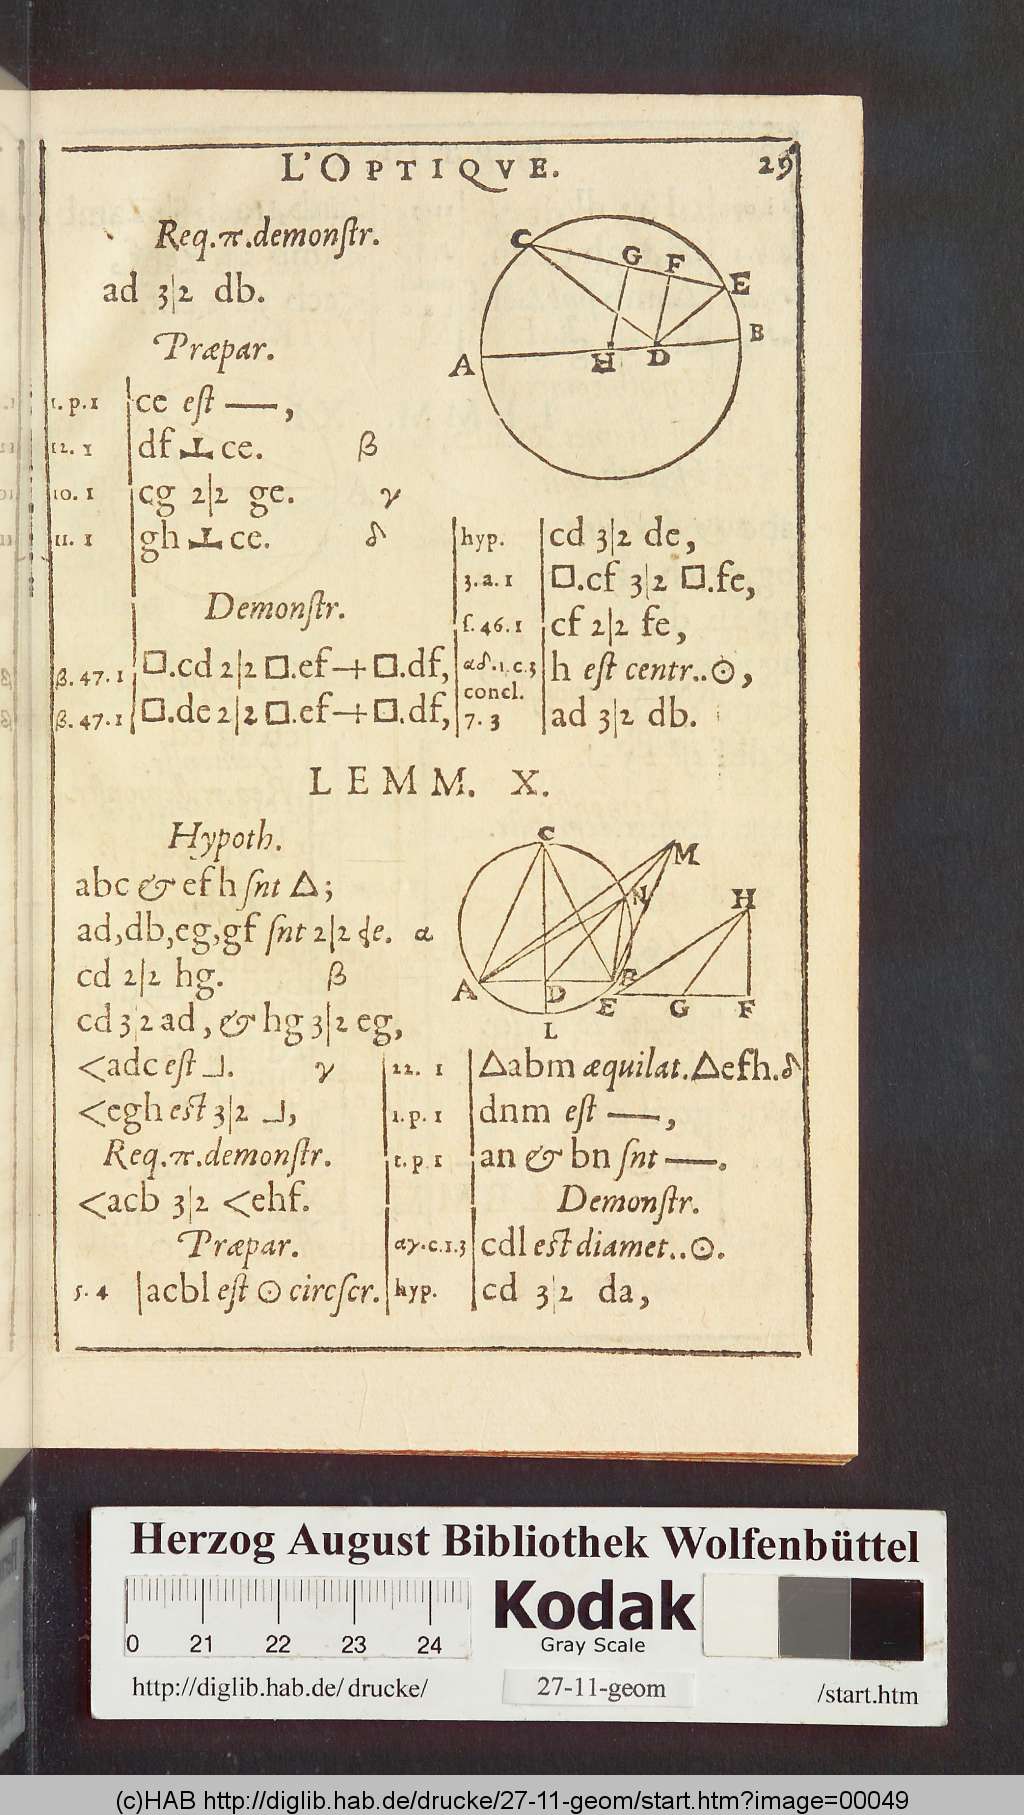 L'OPTIQVE. 29
Req.π.demonſtr.
ad 3|2 db.
Præpar.
1. p. 1 | ce eſt —,
12. 1 | df ⊥ ce. β
10. 1 | cg 2|2 ge. γ
11. 1 | gh ⊥ ce. δ
Demonſtr.
β. 47. 1 | □.cd 2|2 □.ef + □.df,
β. 47. 1 | □.de 2|2 □.ef + □.df,
C G F E B A H D
hyp. | cd 3|2 de,
3. a. 1 | □.cf 3|2 □.fe,
ſ. 46. 1 | cf 2|2 fe,
αδ. 1. c. 3 | h eſt centr..⊙,
concl.
7. 3 | ad 3|2 db.
LEMM. X.
Hypoth.
abc & efh ſnt △;
ad,db,eg,gf ſnt 2|2 de. α
cd 2|2 hg. β
cd 3|2 ad, & hg 3|2 eg,
<adc eſt ⅃. γ
<egh eſt 3|2 ⅃,
Req.π.demonſtr.
<acb 3|2 <ehf.
Præpar.
5. 4 | acbl eſt ⊙ circſcr.
C M N H A D B E G F L
22. 1 | △abm æquilat.△efh.δ
1. p. 1 | dnm eſt —,
1. p 1 | an & bn ſnt —.
Demonſtr.
αγ.c.1.3 | cdl eſt diamet..⊙.
hyp. | cd 3|2 da,
Herzog August Bibliothek Wolfenbüttel
0 21 22 23 24
Kodak
Gray Scale
http://diglib.hab.de/drucke/ 27-11-geom /start.htm
(c)HAB http://diglib.hab.de/drucke/27-11-geom/start.htm?image=00049